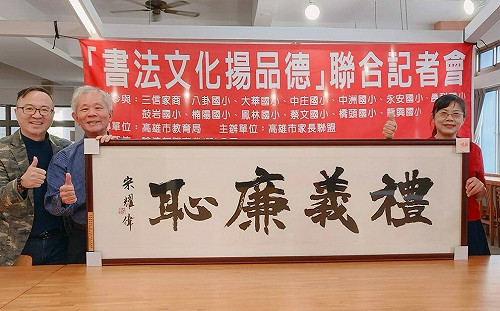 「書法文化揚品德」聯合記者會
參與：三信家商、八卦國小、大華國小、中庄國小、中洲國小、永安國小、
鼓岩國小、楠陽國小、鳳林國小、蔡文國小、橋頭國小、
單位：高雄市教育局 主辦單位：高雄市家長聯盟
禮義廉恥
宋耀偉